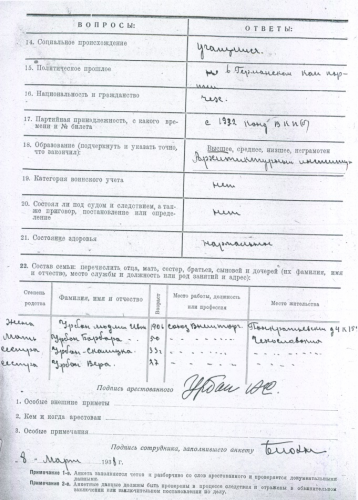 ВОПРОСЫ: ОТВЕТЫ:
14. Социальное происхождение учащийся.
15. Политическое прошлое в Германской ком пар-
тии
16. Национальность и гражданство чех.
17. Партийная принадлежность, с какого вре-
мени и № билета с 1932 канд ВККП(б)
18. Образование (подчеркнуть и указать точно,
что закончил): Высшее, среднее, низшее, неграмотен
Архитектурный институт
19. Категория воинского учета нет
20. Состоял ли под судом и следствием, а так-
же приговор, постановление или опреде-
ление нет
21. Состояние здоровья нормальное
22. Состав семьи: перечислить отца, мать, сестер, братьев, сыновей и дочерей (их фамилия, имя
и отчество, место службы и должность или род занятий и адрес):
Степень
родства Фамилия, имя и отчество Возраст Место работы, должность
или профессия Место жительства
Жена Урбан Людмила 1906 завод
Мать Урбан Барбара 50 Чехословакия
сестра Урбан 33
сестра Урбан Вера 27
Подпись арестованного Урбан
1. Особые внешние приметы
2. Кем и когда арестован
3. Особые примечания
Подпись сотрудника, заполнившего анкету
8 Марта 1938 г.
Примечание 1-е. Анкета заполняется четко и разборчиво со слов арестованного и проверяется документальными
данными.
Примечание 2-е. Анкетные данные должны быть проверены в процессе следствия и отражены в обвинительном
заключении